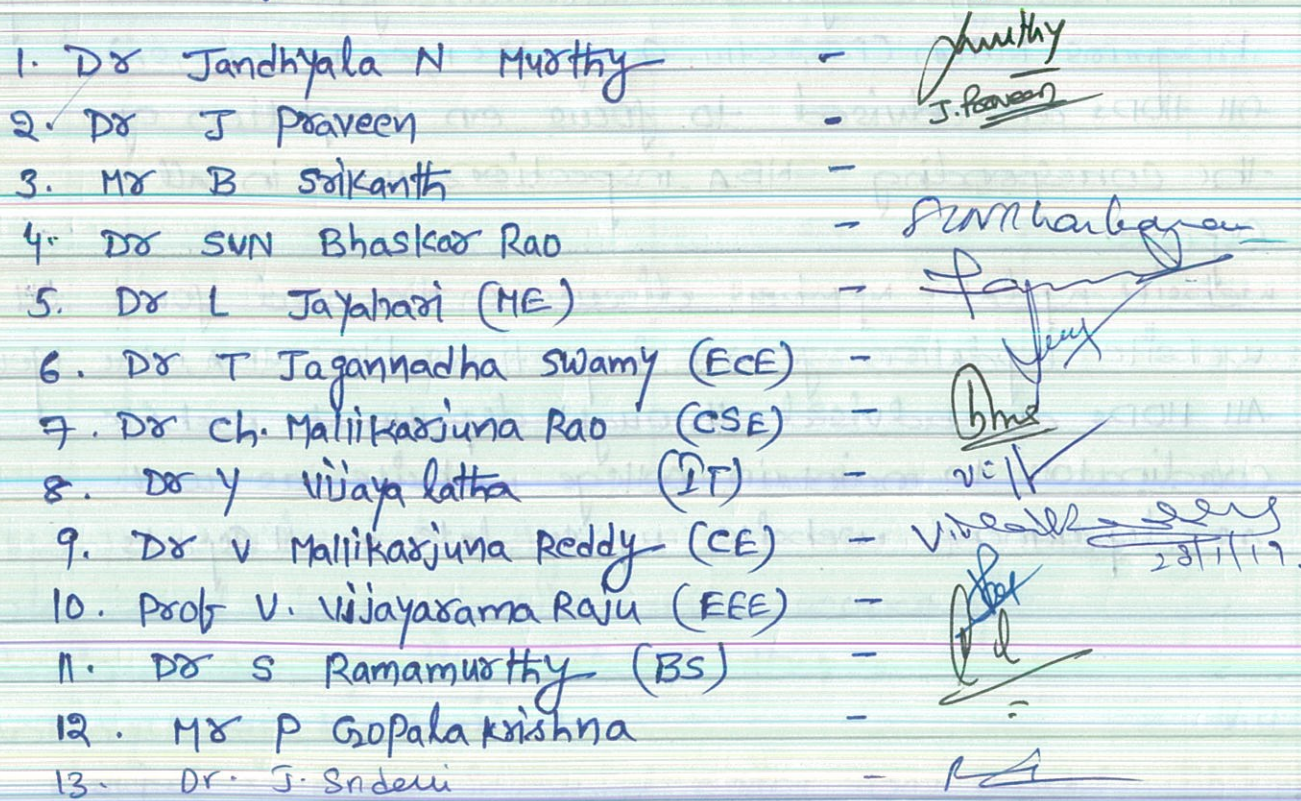 1. Dr Jandhyala N Murthy - Jmurthy
2. Dr J Praveen - J. Praveen
3. Mr B Srikanth -
4. Dr SVN Bhaskar Rao -
5. Dr L Jayahari (ME) -
6. Dr T Jagannadha Swamy (ECE) -
7. Dr Ch. Mallikarjuna Rao (CSE) -
8. Dr Y Vijaya latha (IT) -
9. Dr V Mallikarjuna Reddy (CE) -
10. Prof V. Vijayarama Raju (EEE) -
11. Dr S Ramamurthy (BS) -
12. Mr P Gopala Krishna -
13. Dr. J. Sridevi -